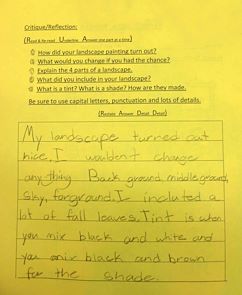 Critique/Reflection:
(Read & Re-read Underline Answer one part at a time)
① How did your landscape painting turn out?
② What would you change if you had the chance?
③ Explain the 4 parts of a landscape.
④ What did you include in your landscape?
⑤ What is a tint? What is a shade? How are they made.
Be sure to use capital letters, punctuation and lots of details.
(Restate Answer Detail Detail)
My landscape turned out
nice. I wouldn't change
any thing Back ground, middle ground,
sky, forground. I included a
lot of fall leaves. Tint is when
you mix black and white and
you mix black and brown
for the shade.